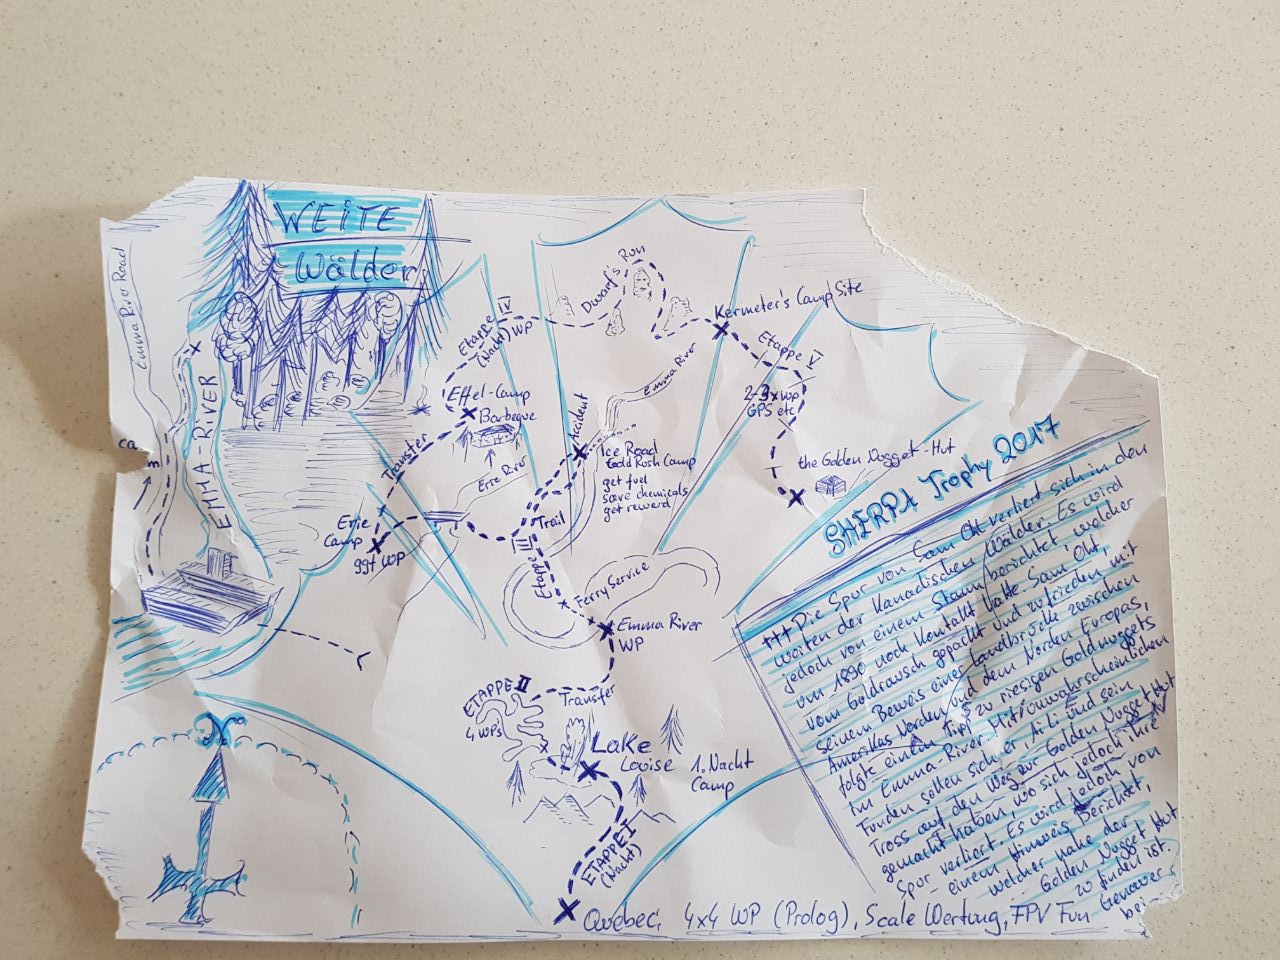 WEITE
Wälder
Emma River Road
EMMA-RIVER
ca.
Dwarf's Run
Etappe IV
(Nacht) WP
Kermeter's CampSite
Etappe V
2-3x WP
GPS etc
the Golden Nugget-Hut
Emma River
Effel-Camp
Barbeque
Transfer
Erie River
Accident
Ice Road
Gold Rush Camp
get fuel
save chemicals
get reward
Trail
Erie
Camp
ggf WP
Etappe III
Ferry Service
Emma River
WP
ETAPPE II
4 WPs
Transfer
Lake
Louise
1. Nacht
Camp
ETAPPE I
(Nacht)
N
Quebec, 4x4 WP (Prolog), Scale Wertung, FPV Fun
SHERPA Trophy 2017
+++ Die Spur von Sam Oht verliert sich in den
weiten der Kanadischen Wälder. Es wird
jedoch von einem Stamm berichtet, welcher
um 1890 noch Kontakt hatte. Sam Oht,
vom Goldrausch gepackt und zufrieden mit
seinem Beweis einer Landbrücke zwischen
Amerikas Norden und dem Norden Europas,
folgte einem Tipp zu riesigen Goldnuggets
im Emma-River. Mit unwahrscheinlichen
Funden sollen sich er, und sein
Tross auf den Weg zur Golden Nugget Hut
gemacht haben, wo sich jedoch ihre
Spur verliert. Es wird jedoch von
einem Hinweis Berichtet,
welcher nahe der
Golden Nugget Hut
zu finden ist.
Genauer
bei